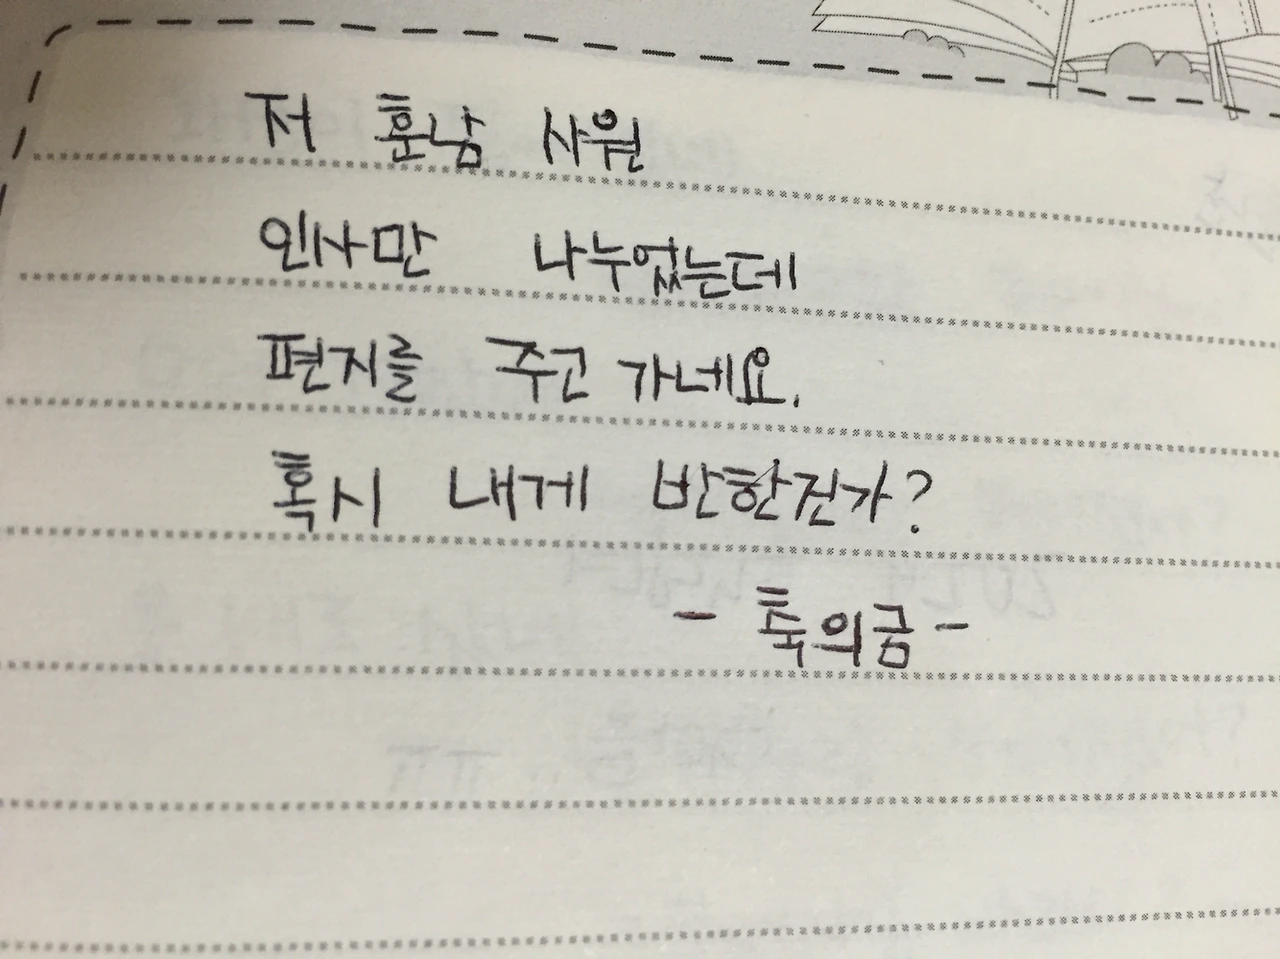 저 훈남 사원
인사만 나누었는데
편지를 주고 가네요.
혹시 내게 반한건가?
- 축의금 -